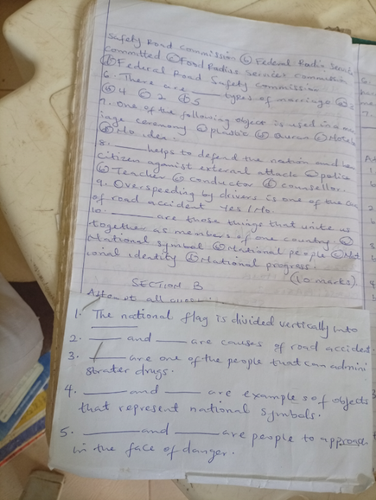 Safety Road Commission ⓒ Federal Radio Service
committed ⓒ Food Radise Service Committee
ⓓ Federal Road Safety Commission
6. There are ____ types of marriage ⓐ 3
ⓑ 4 ⓒ 2 ⓓ 5
7. One of the following object is used in a
iage ceremony ⓐ plastic ⓑ Quran ⓒ
8. ____ helps to defend the nation and
citizen against external attack ⓐ police
ⓑ Teacher ⓒ conductor ⓓ counsellor.
9. Overspeeding by drivers is one of the
of road accident. Yes / No.
10. ____ are those things that unite us
together as members of one country ⓐ
National symbol ⓑ National people ⓒ Nat
ional identity ⓓ National progress.
(10 marks)
SECTION B
1. The national flag is divided vertically into
____
2. ____ and ____ are causes of road accident
3. ____ are one of the people that can admini
strater drugs.
4. ____ and ____ are examples of objects
that represent national symbols.
5. ____ and ____ are people to approach
in the face of danger.